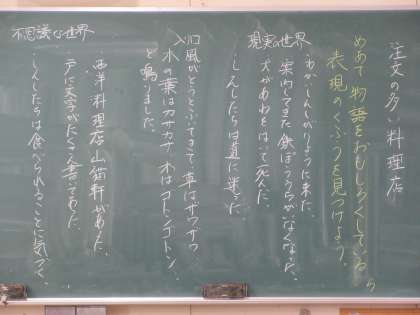 注文の多い料理店
めあて 物語をおもしろくしている
表現のくふうを見つけよう。
現実の世界
・わかいしんしがりょうに来た。
・案内してきた鉄ぽううちがいなくなった。
・犬があわをはいて死んだ。
・しんしたちは道に迷った。
入り口
風がどうとふいてきて、草はザワザワ
木の葉はカサカサ、木はゴトンゴトン
と鳴りました。
不思議な世界
・西洋料理店 山猫軒があった。
・戸に文字がたくさん書いてあった。
・しんしたちは食べられることに気づく。